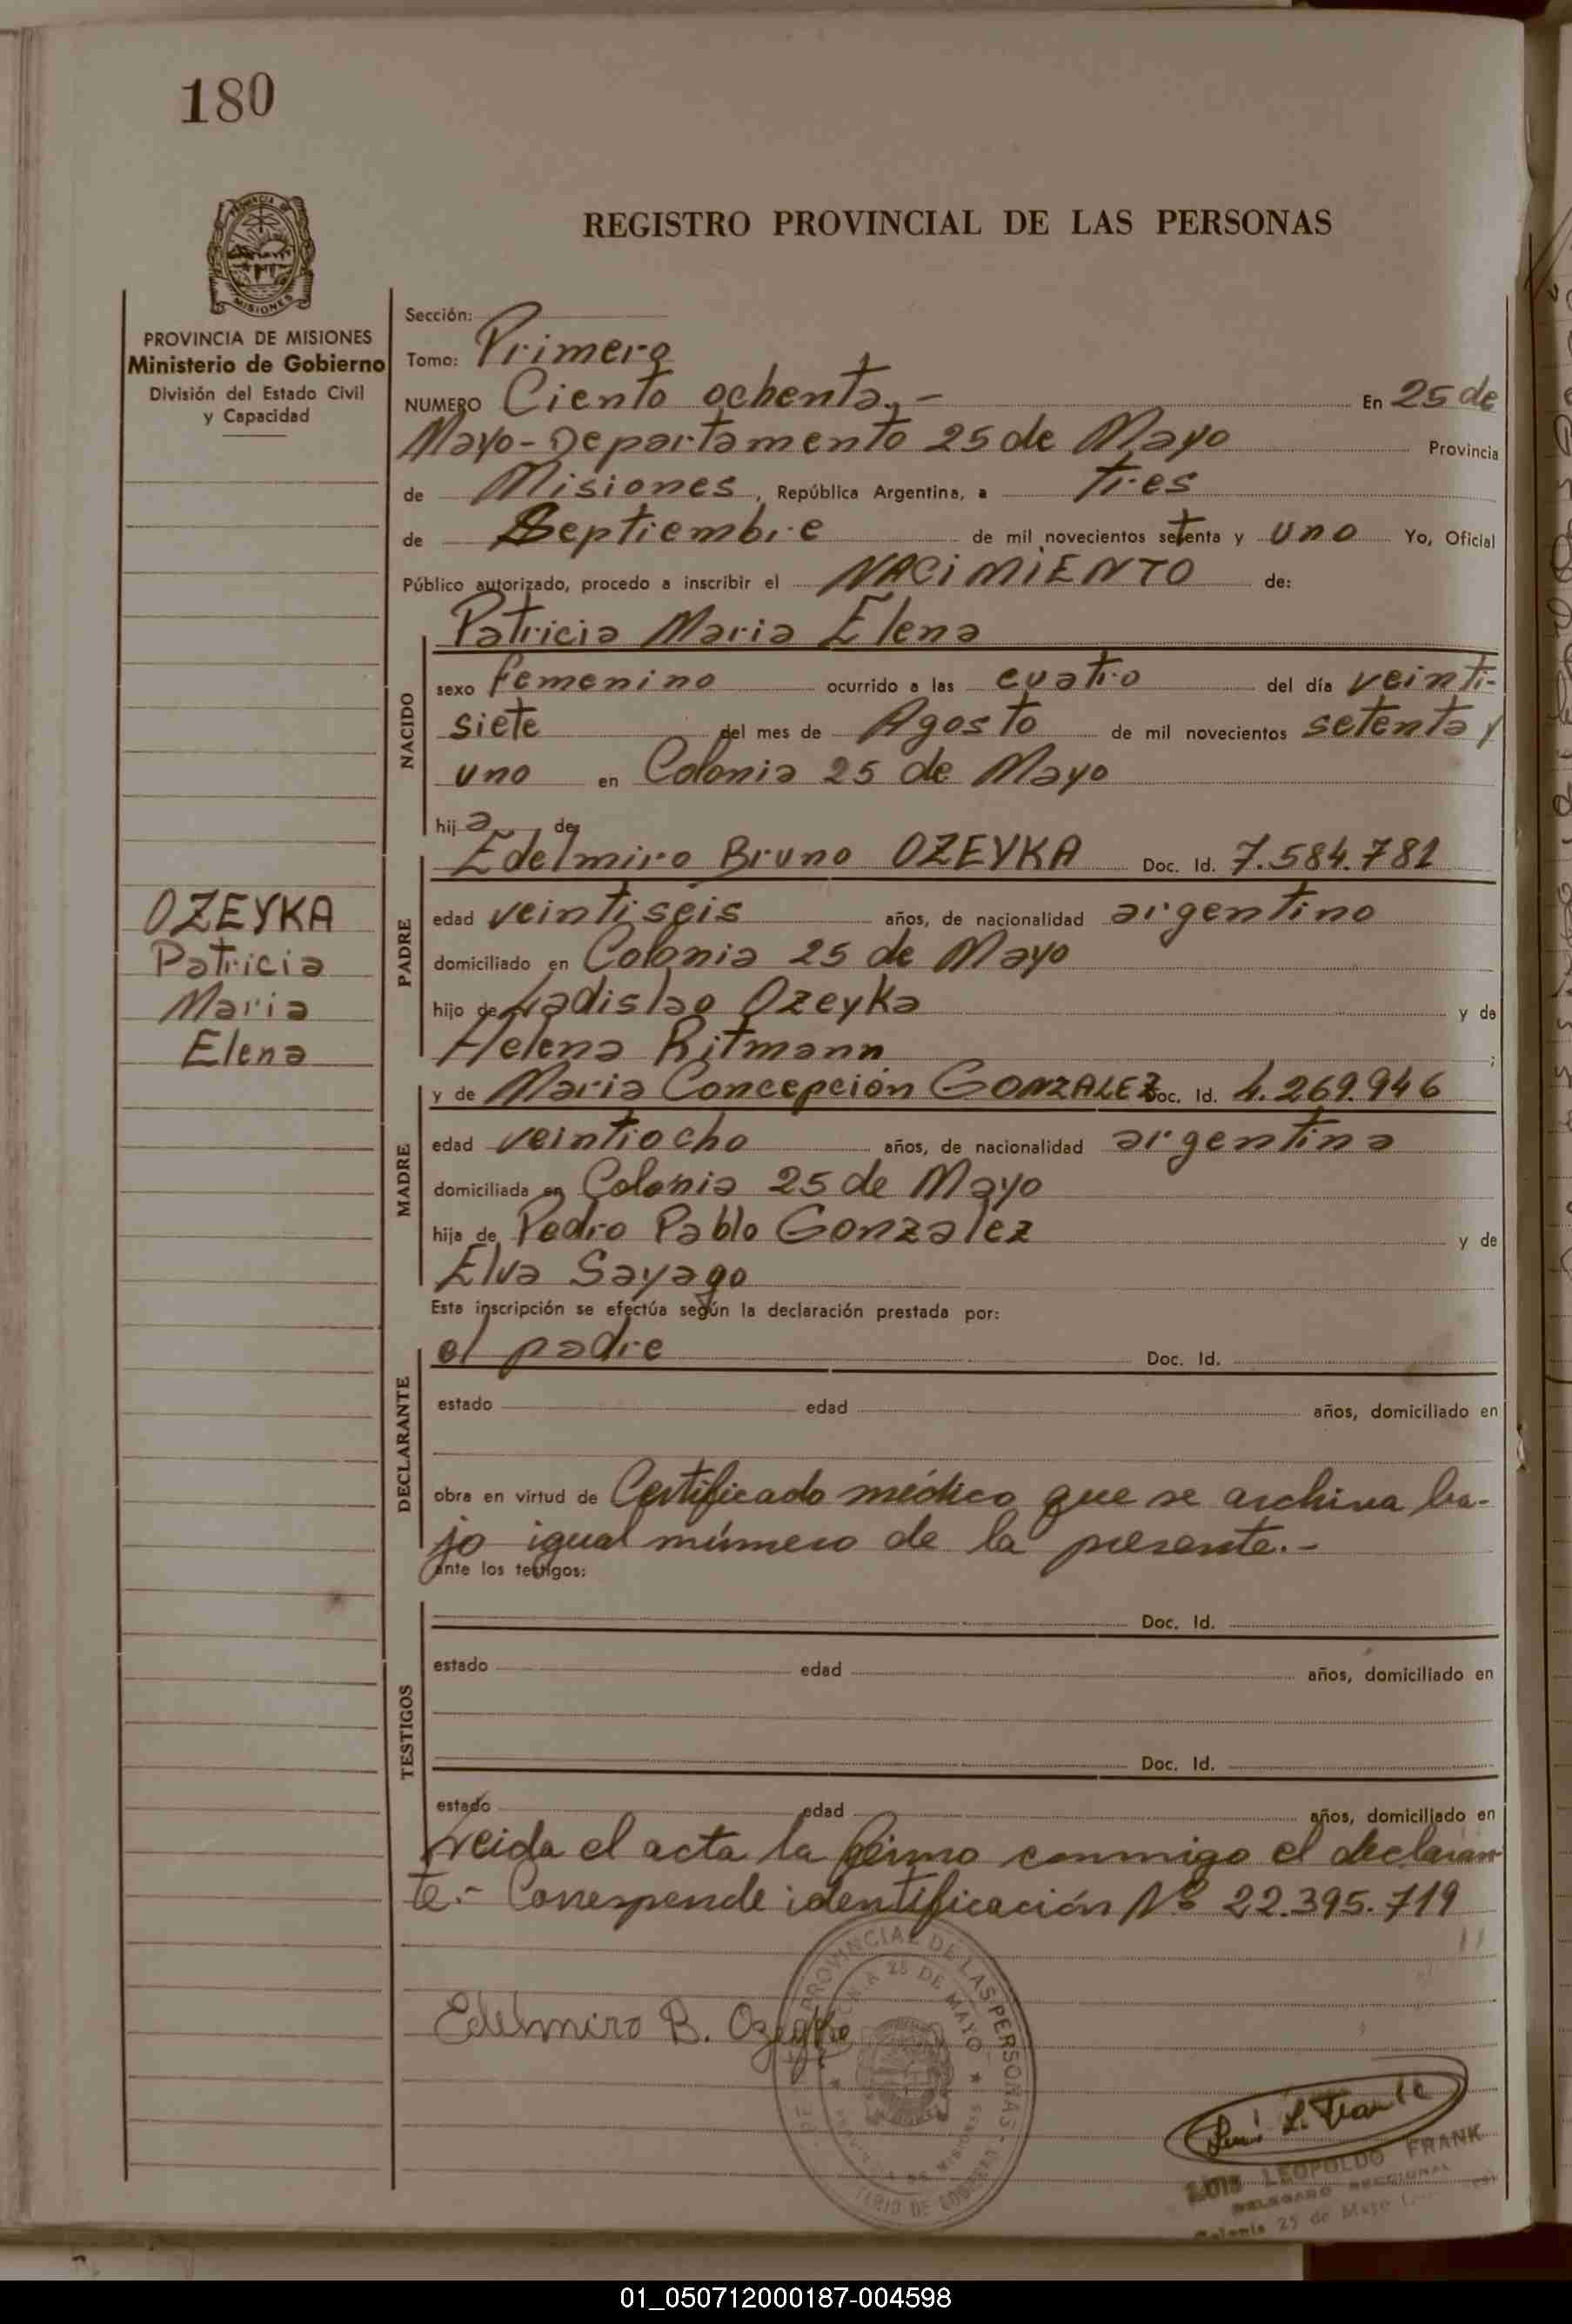 180
REGISTRO PROVINCIAL DE LAS PERSONAS
PROVINCIA DE
MISIONES
PROVINCIA DE MISIONES
Ministerio de Gobierno
División del Estado Civil
y Capacidad
OZEYKA
Patricia
Maria
Elena
Sección:
Tomo: Primero
NUMERO Ciento ochenta.- En 25 de
Mayo-Departamento 25 de Mayo Provincia
de Misiones, República Argentina, a tres
de Septiembre de mil novecientos setenta y uno Yo, Oficial
Público autorizado, procedo a inscribir el NACIMIENTO de:
Patricia Maria Elena
NACIDO
sexo femenino ocurrido a las cuatro del día veinti-
siete del mes de Agosto de mil novecientos setenta y
uno en Colonia 25 de Mayo
hija de
PADRE
Edelmiro Bruno OZEYKA Doc. Id. 7.584.781
edad veintiseis años, de nacionalidad argentino
domiciliado en Colonia 25 de Mayo
hijo de Ladislao Ozeyka y de
Helena Ritmann ;
MADRE
y de Maria Concepción GONZALEZ Doc. Id. 4.269.946
edad veintiocho años, de nacionalidad argentina
domiciliada en Colonia 25 de Mayo
hija de Pedro Pablo Gonzalez y de
Elva Sayago
Esta inscripción se efectúa según la declaración prestada por:
DECLARANTE
el padre Doc. Id.
estado edad años, domiciliado en
obra en virtud de Certificado médico que se archiva ba-
jo igual número de la presente.-
ante los testigos:
TESTIGOS
Doc. Id.
estado edad años, domiciliado en
Doc. Id.
estado edad años, domiciliado en
Leida el acta la firma conmigo el declaran-
te.- Corresponde identificación Nº 22.395.719
Edelmiro B. Ozeyka
PROVINCIAL DE LAS PERSONAS
25 DE MAYO
MISIONES
LUIS LEOPOLDO FRANK
DELEGADO SECCIONAL
Colonia 25 de Mayo
01_050712000187-004598